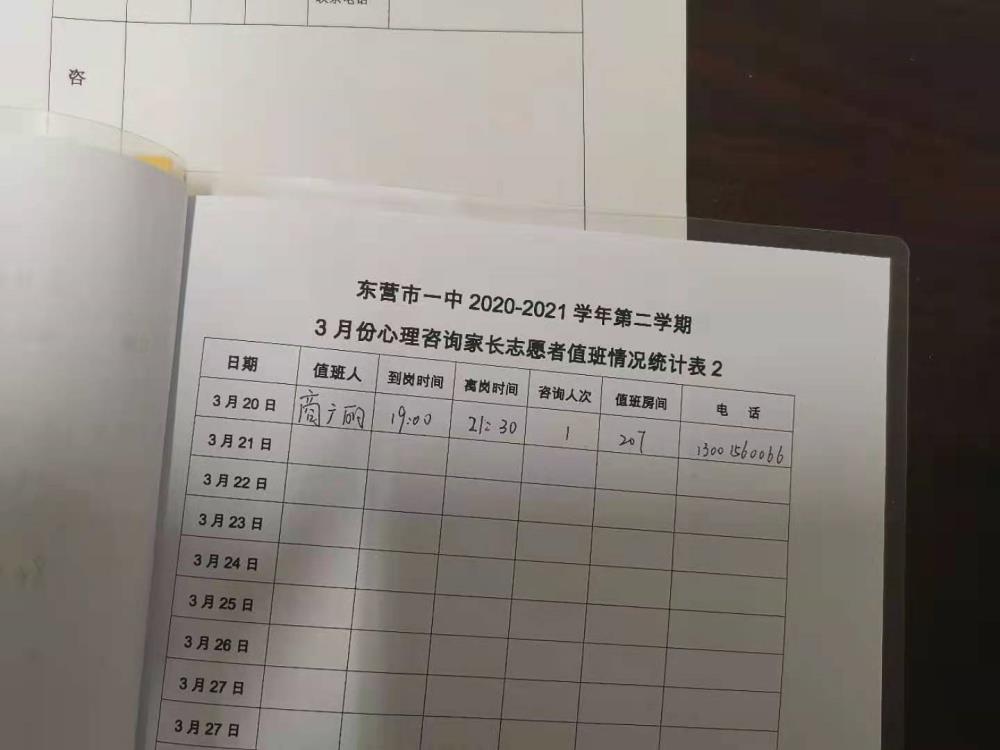 咨
东营市一中 2020-2021 学年第二学期
3 月份心理咨询家长志愿者值班情况统计表 2
日期 值班人 到岗时间 离岗时间 咨询人次 值班房间 电 话
3 月 20 日 商广丽 19:00 21:30 1 207 13001560066
3 月 21 日
3 月 22 日
3 月 23 日
3 月 24 日
3 月 25 日
3 月 26 日
3 月 27 日
3 月 27 日